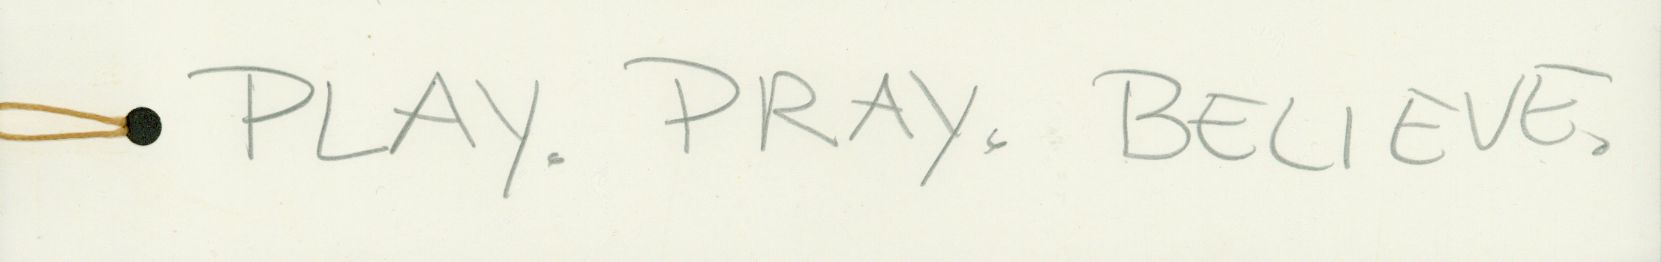 PLAY. PRAY. BELIEVE.